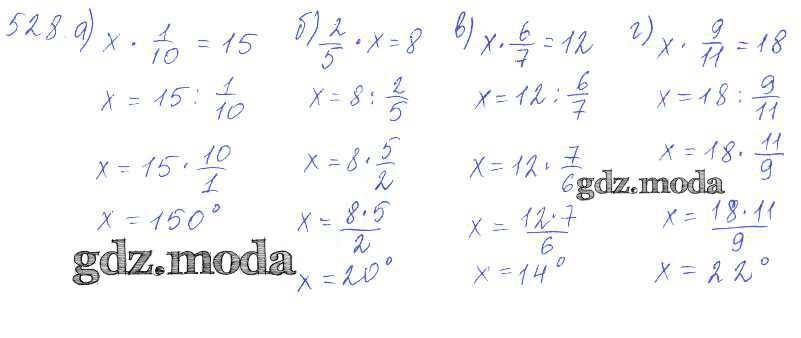 528. а) x · 1/10 = 15
x = 15 : 1/10
x = 15 · 10/1
x = 150°
б) 2/5 · x = 8
x = 8 : 2/5
x = 8 · 5/2
x = 8·5/2
x = 20°
в) x · 6/7 = 12
x = 12 : 6/7
x = 12 · 7/6
x = 12·7/6
x = 14°
г) x · 9/11 = 18
x = 18 : 9/11
x = 18 · 11/9
x = 18·11/9
x = 22°
gdz.moda
gdz.moda